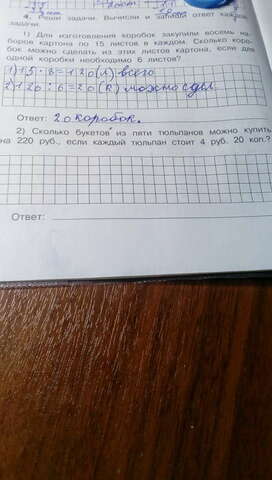 4. Реши задачи. Вычисли и запиши ответ каждой
задачи.
1) Для изготовления коробок закупили восемь на-
боров картона по 15 листов в каждом. Сколько коро-
бок можно сделать из этих листов картона, если для
одной коробки необходимо 6 листов?
1) 15 · 8 = 120 (л) всего
2) 120 : 6 = 20 (к) можно сдел.
Ответ: 20 коробок.
2) Сколько букетов из пяти тюльпанов можно купить
на 220 руб., если каждый тюльпан стоит 4 руб. 20 коп.?
Ответ: